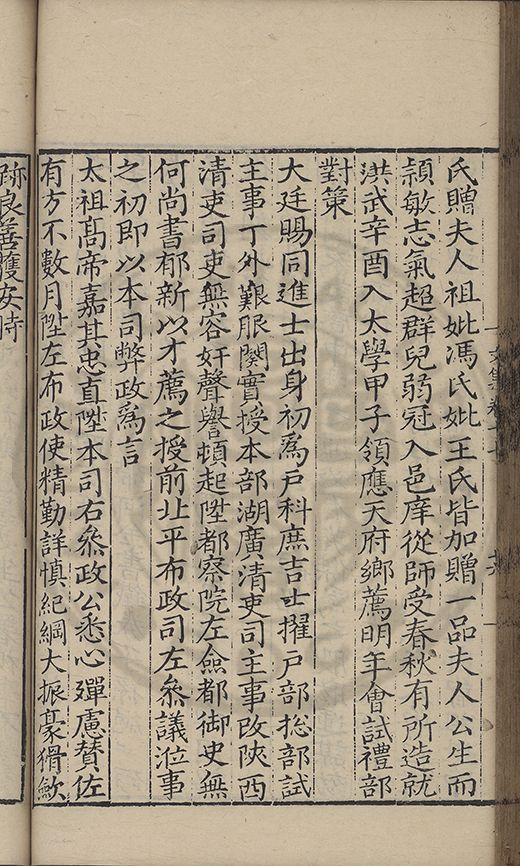 氏贈夫人祖妣馮氏妣王氏皆加贈一品夫人公生而
頴敏志氣超群兒弱冠入邑庠從師受春秋有所造就
洪武辛酉入太學甲子領應天府鄉薦明年會試禮部
對策
大廷賜同進士出身初爲戶科庶吉士擢戶部捴部試
主事丁外艱服闋實授本部湖廣清吏司主事改陝西
清吏司吏無容奸聲譽頓起陞都察院左僉都御史無
何尚書郁新以才薦之授前北平布政司左叅議涖事
之初即以本司弊政爲言
太祖髙帝嘉其忠直陞本司右叅政公悉心殫慮賛佐
有方不數月陞左布政使精勤詳慎紀綱大振豪猾歛
跡良善獲安時